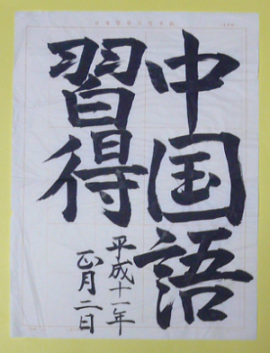 中国語
習得
平成十一年
正月二日